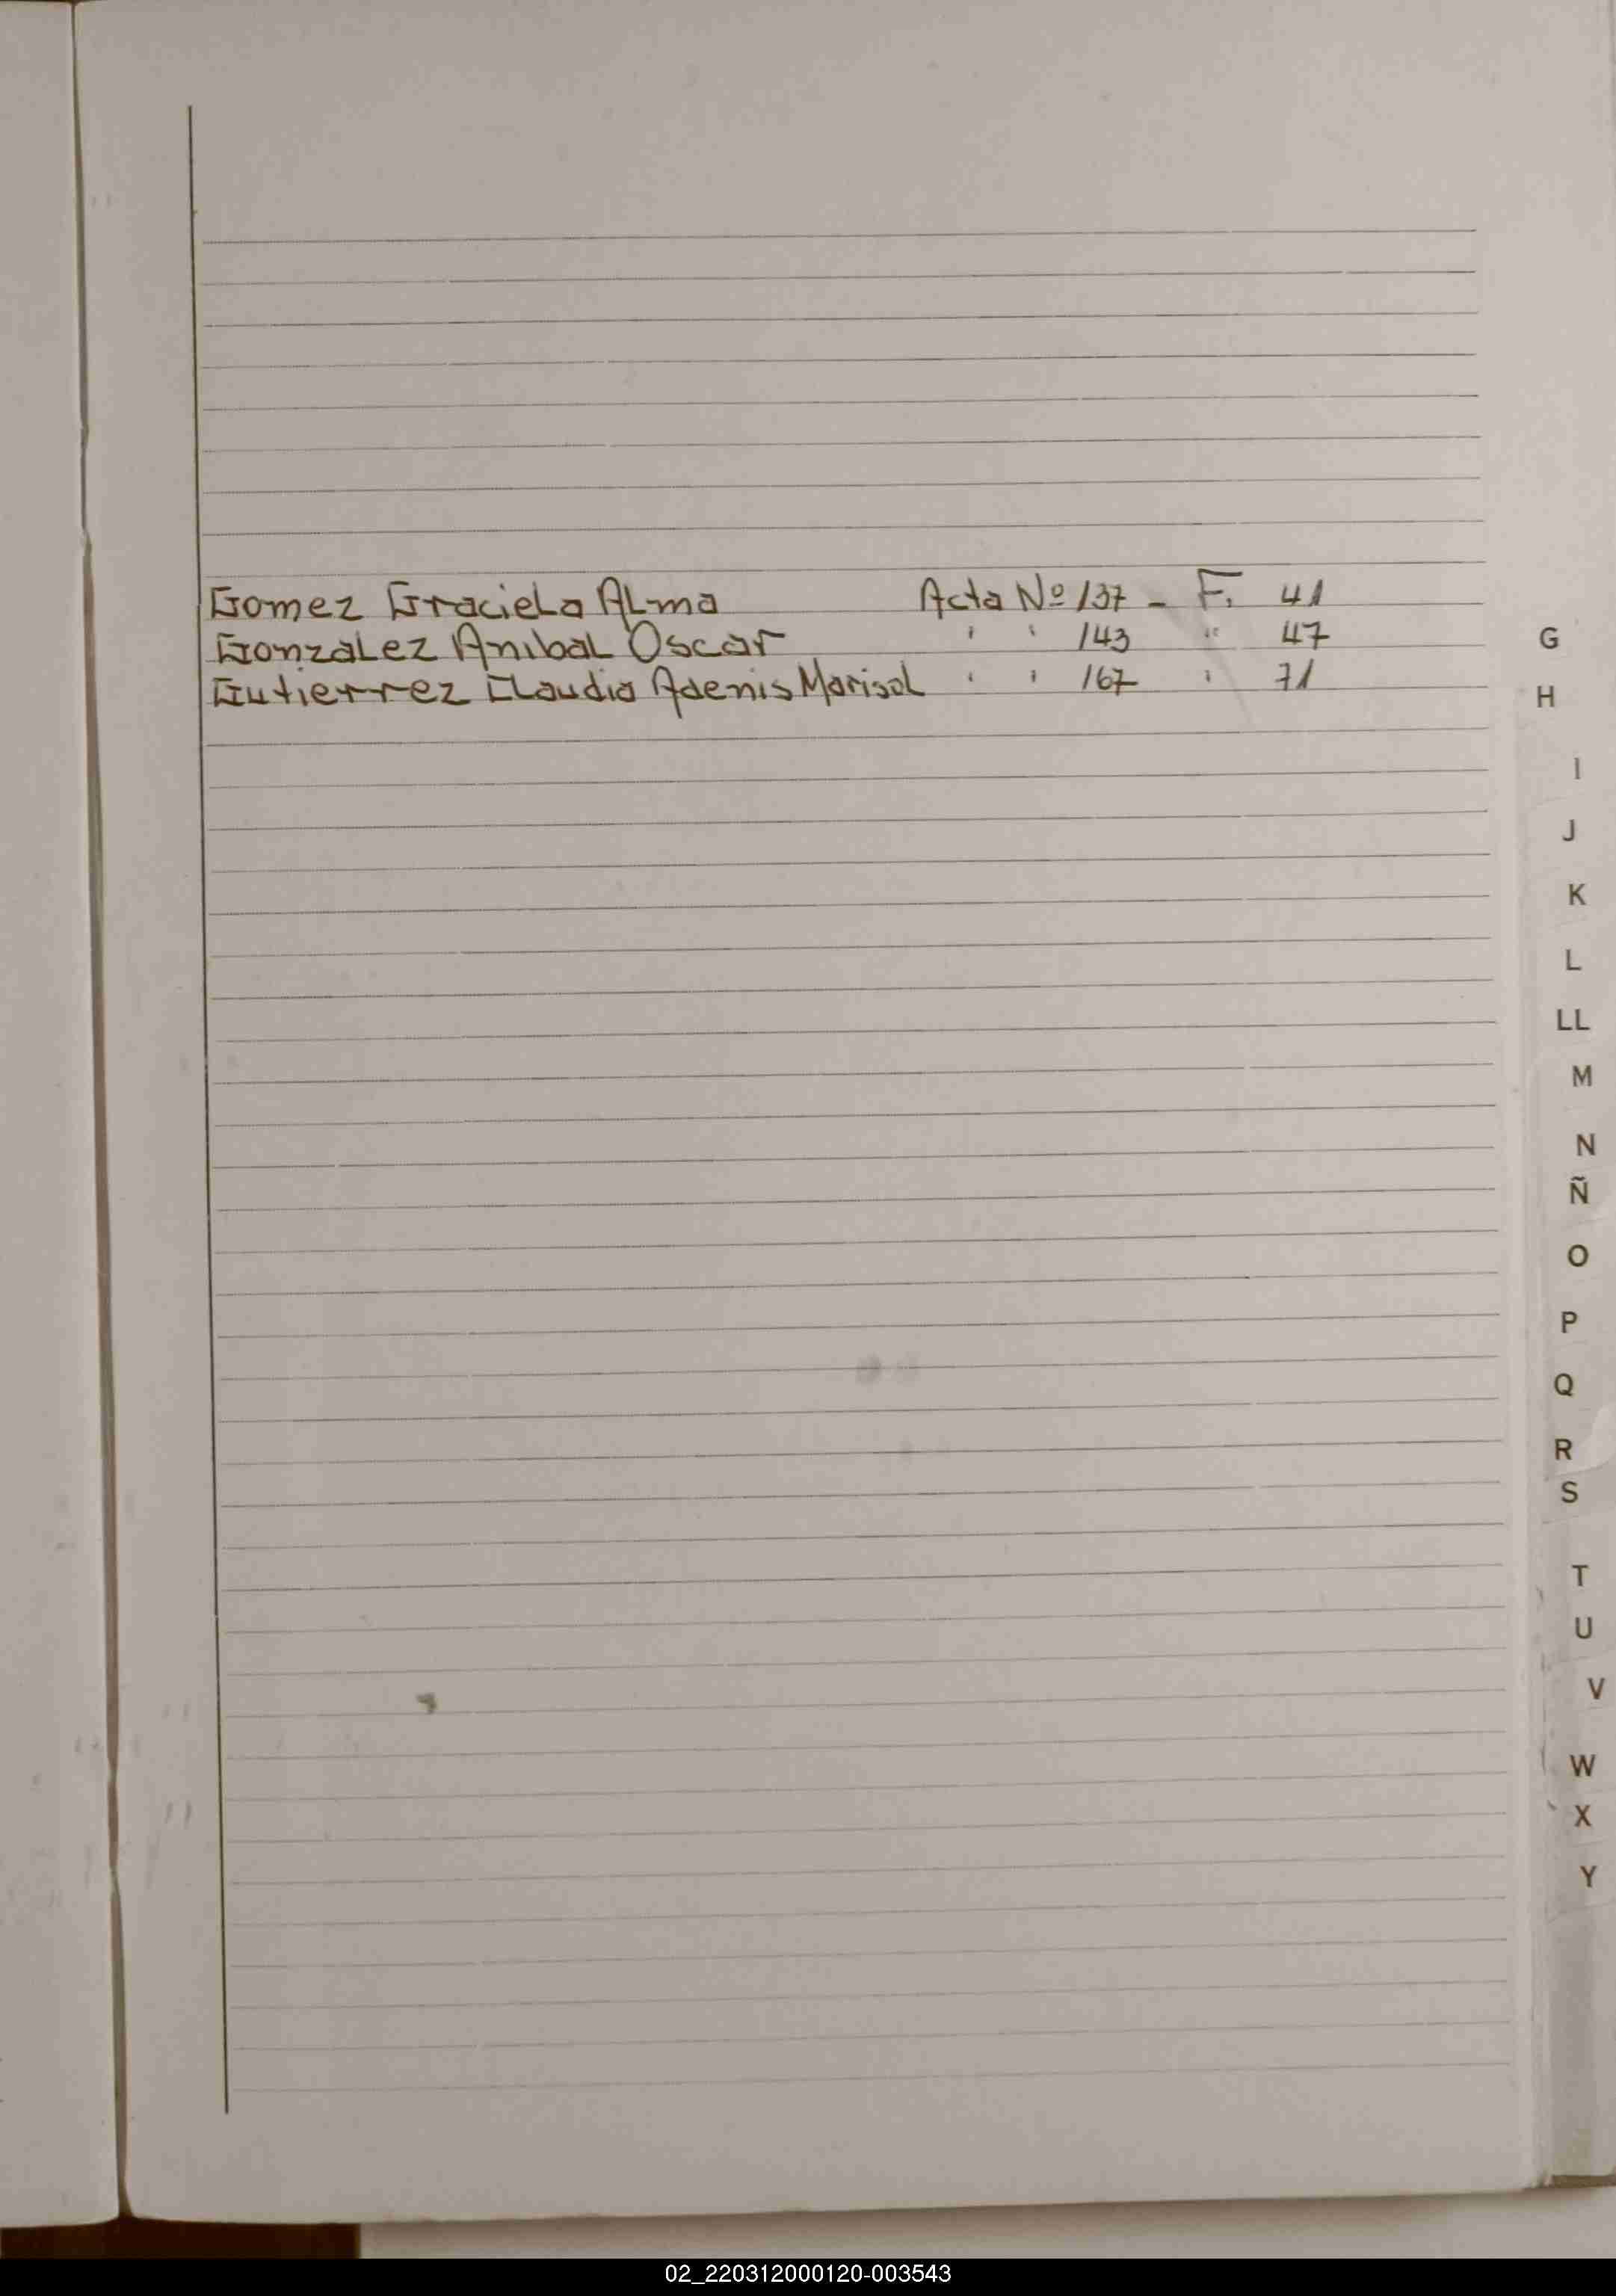 Gomez Graciela Alma Acta Nº 137 - F. 41
Gonzalez Anibal Oscar " " 143 " 47
Gutierrez Claudia Adenis Marisol " " 167 " 71
G
H
I
J
K
L
LL
M
N
Ñ
O
P
Q
R
S
T
U
V
W
X
Y
02_220312000120-003543